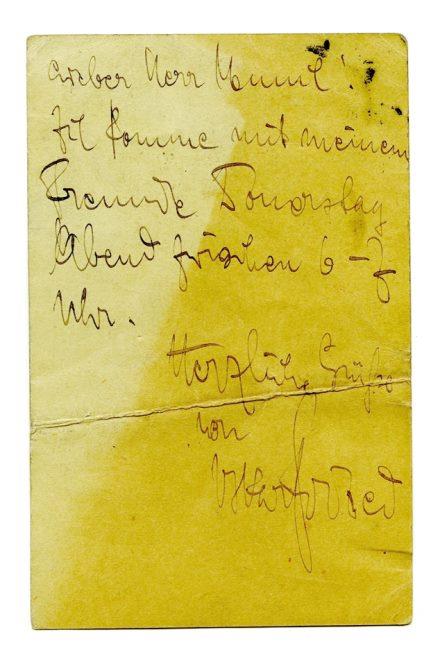 Lieber Herr
Ich komme mit meinem
Freunde Donerstag
Abend zwischen 6-7
Uhr.
Herzliche Grüße
von